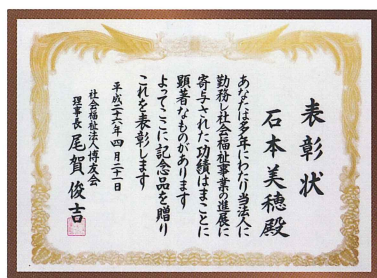 表彰状
石本美穂殿
あなたは多年にわたり当法人に
勤務し社会福祉事業の進展に
寄与された功績はまことに
顕著なものがあります
よってここに記念品を贈り
これを表彰します
平成二十六年四月二十一日
社会福祉法人博友会
理事長 尾賀俊吉